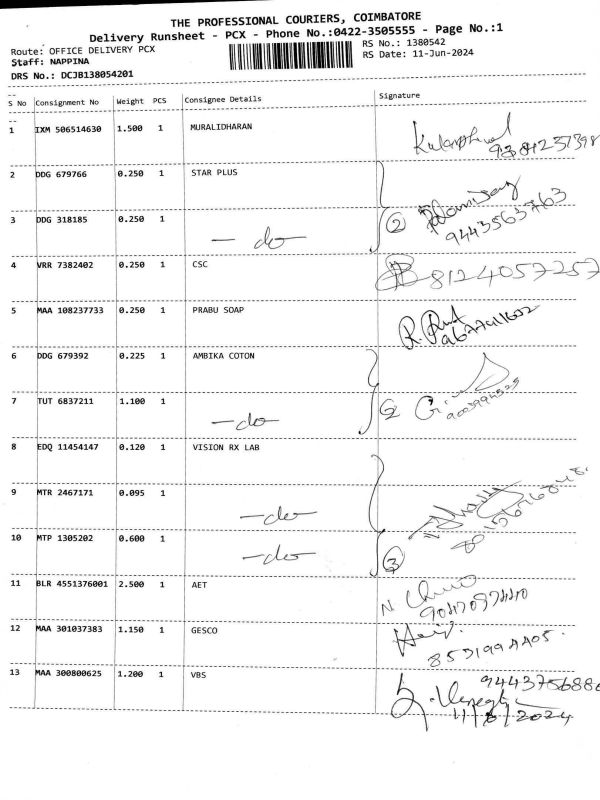 THE PROFESSIONAL COURIERS, COIMBATORE
Delivery Runsheet - PCX - Phone No.:0422-3505555 - Page No.:1
Route: OFFICE DELIVERY PCX
RS No.: 1380542
Staff: NAPPINA
RS Date: 11-Jun-2024
DRS No.: DCJB138054201
S No Consignment No Weight PCS Consignee Details Signature
1 IXM 506514630 1.500 1 MURALIDHARAN
2 DDG 679766 0.250 1 STAR PLUS
3 DDG 318185 0.250 1 - do - 2
9443563763
4 VRR 7382402 0.250 1 CSC 8124057257
5 MAA 108237733 0.250 1 PRABU SOAP
6 DDG 679392 0.225 1 AMBIKA COTON
7 TUT 6837211 1.100 1 - do 2
8 EDQ 11454147 0.120 1 VISION RX LAB
9 MTR 2467171 0.095 1 - do -
10 MTP 1305202 0.600 1 - do - 3
11 BLR 4551376001 2.500 1 AET
12 MAA 301037383 1.150 1 GESCO
8531994405.
13 MAA 300800625 1.200 1 VBS 944375688
11/6/2024